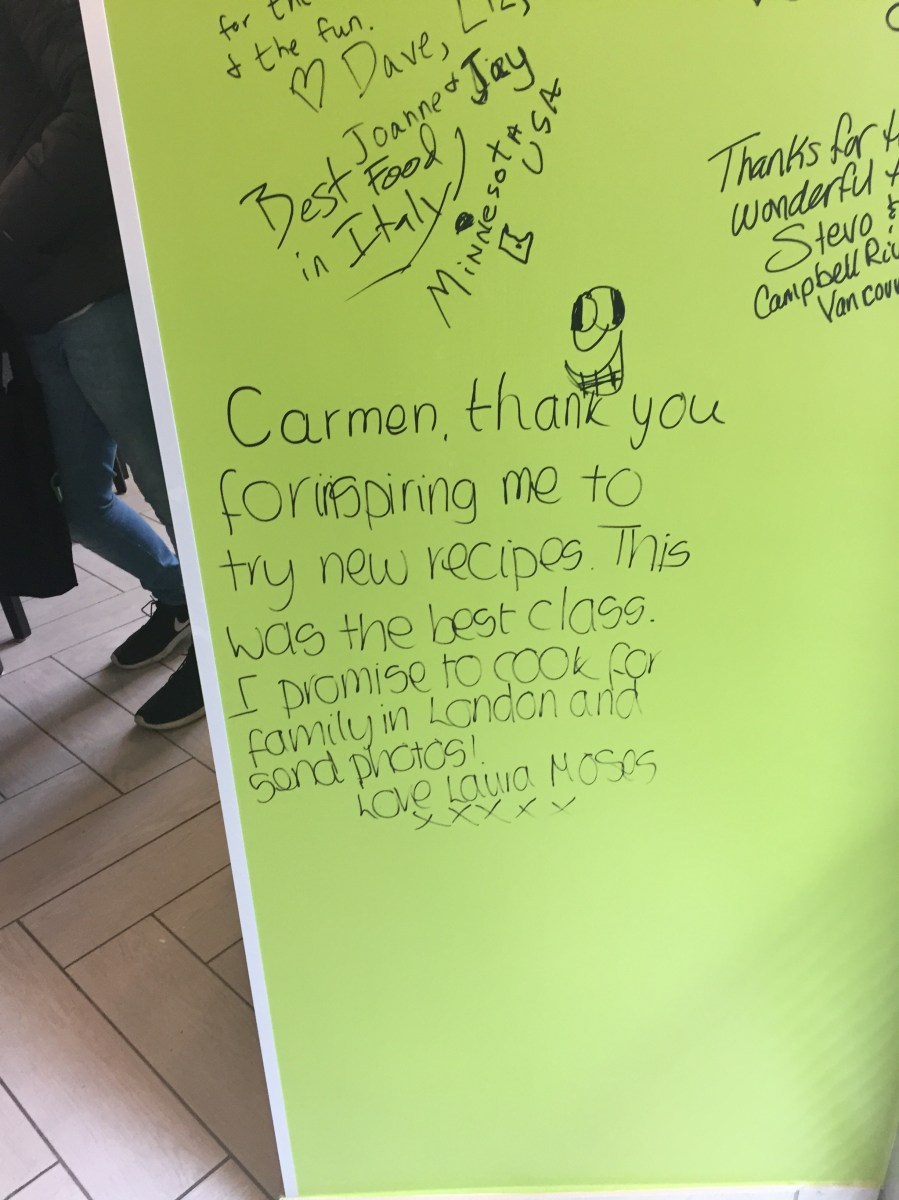 for the
& the fun.
♡ Dave, Liz,
Joanne & Jay
Best Food
in Italy
Minnesota
USA
Thanks for
wonderful
Stevo &
Campbell
Carmen, thank you
for inspiring me to
try new recipes. This
was the best class.
I promise to cook for
family in London and
send photos!
Love Laura Moses
xxxxx